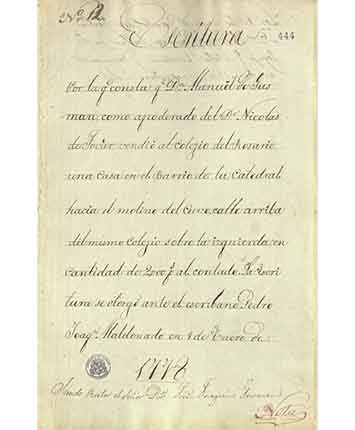 No. 12
Escritura
444
Por la q.e consta q.e Dn. Manuel de Gus
man como apoderado del Dr. Nicolas
de vendió al colegio del Rosario
una casa en el Barrio de la Catedral
hacia el molino del calle arriba
del mismo colegio sobre la izquierda en
cantidad de 2000 p.s al contado. La escri
tura se otorgó ante el escribano Pedro
Joaq.n Maldonado en 1 de Enero de
1778
Siendo Rector el Señor Dr. Joaquin
Nota